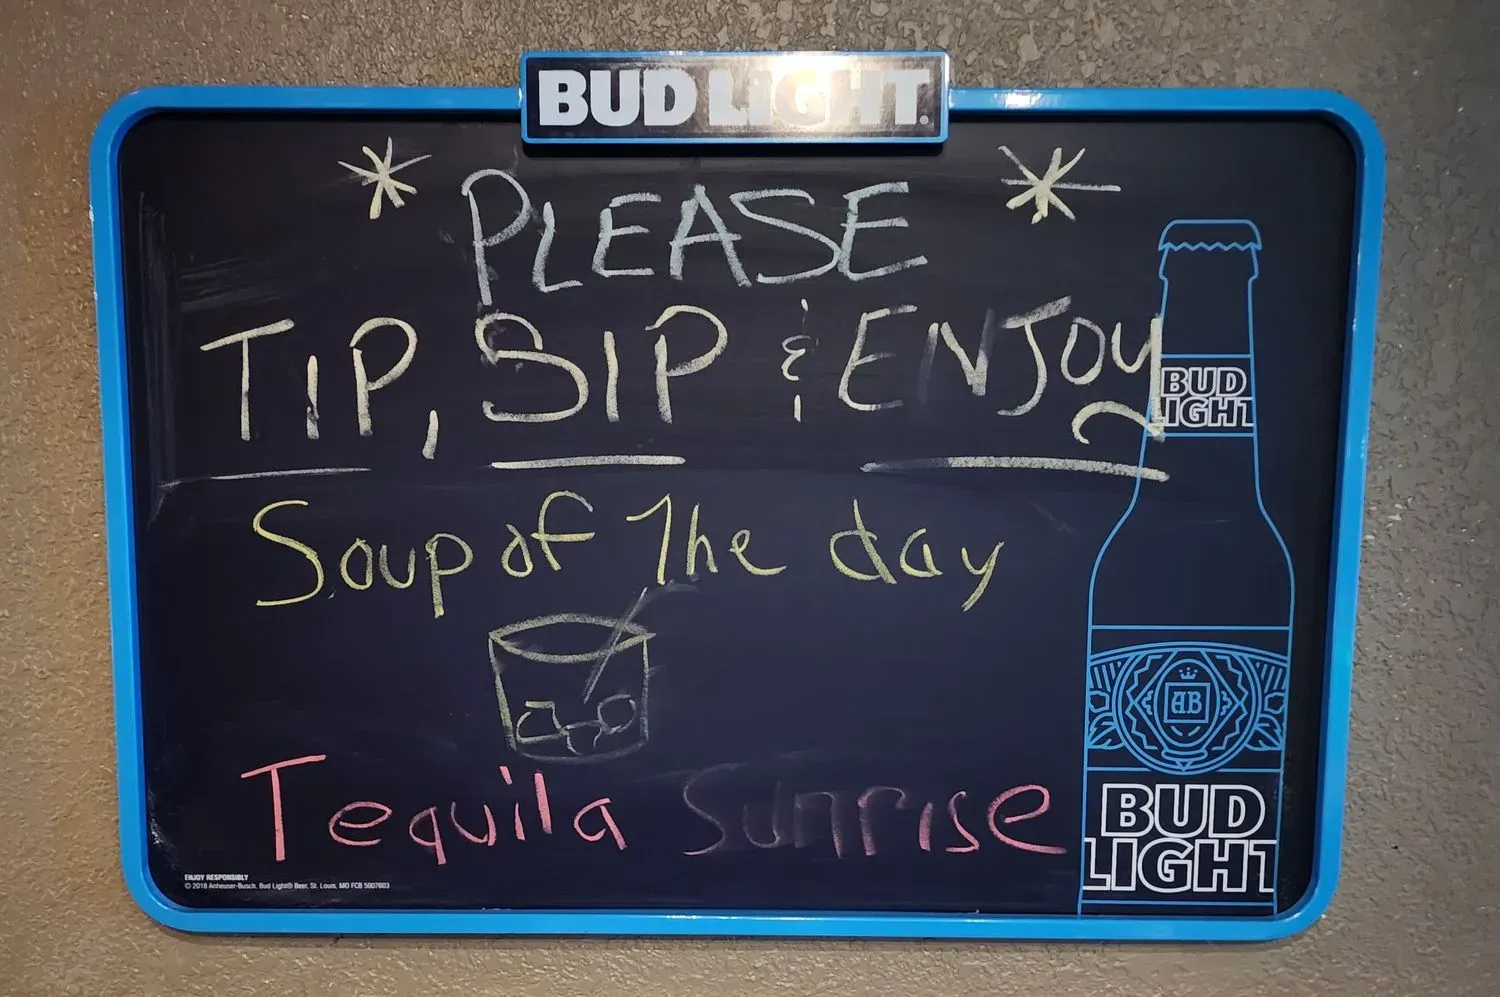 BUD LIGHT®
* PLEASE *
TIP, SIP & ENJOY
BUD
LIGHT
Soup of The day
AB
Tequila Sunrise
BUD
LIGHT
ENJOY RESPONSIBLY
© 2018 Anheuser-Busch, Bud Light® Beer, St. Louis, MO FCB 5007603